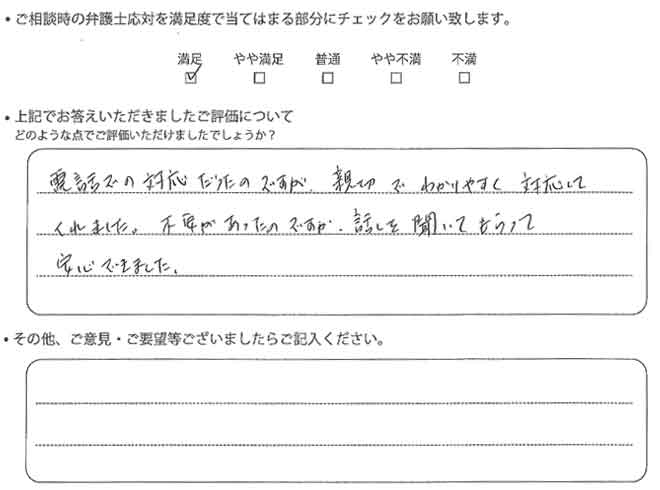 ・ご相談時の弁護士応対を満足度で当てはまる部分にチェックをお願い致します。
満足 やや満足 普通 やや不満 不満
☑ ☐ ☐ ☐ ☐
・上記でお答えいただきましたご評価について
どのような点でご評価いただけましたでしょうか？
電話での対応だったのですが、親切でわかりやすく対応して
くれました。不安があったのですが、話しを聞いてもらって
安心できました。
・その他、ご意見・ご要望等ございましたらご記入ください。